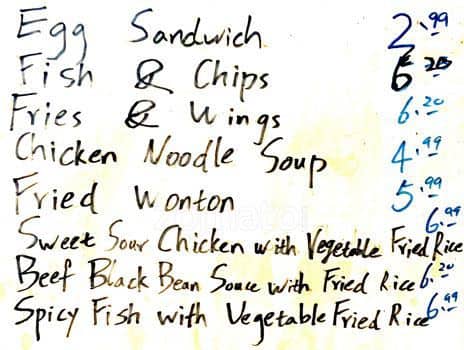 Egg Sandwich 2.99
Fish & Chips 6
Fries & Wings 6.20
Chicken Noodle Soup 4.99
Fried Wonton 5.99
Sweet Sour Chicken with Vegetable Fried Rice 6.99
Beef Black Bean Sauce with Fried Rice 6.20
Spicy Fish with Vegetable Fried Rice 6.99